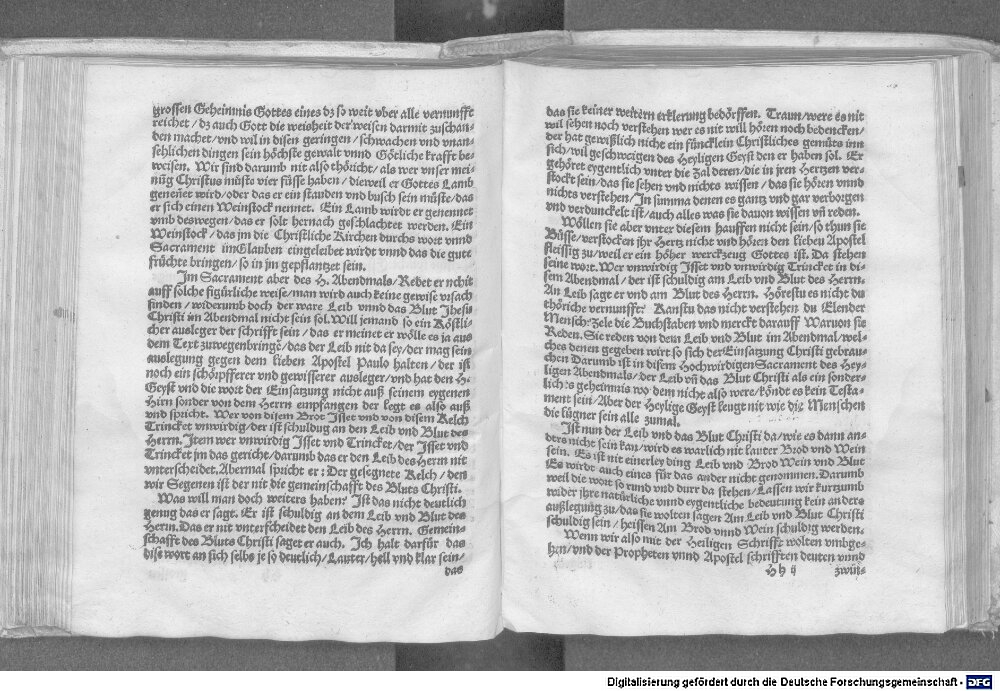 grossen Geheimnis Gottes eines dz so weit vber alle vernunfft
reichet / dz auch Gott die weisheit der weisen darmit zuschan-
den machet / vnd wil in disen geringen / schwachen vnd vnan-
sehlichen dingen sein höchste gewalt vnnd Götliche krafft be-
weisen. Wir sind darumb nit also thöricht / als wer vnser mei-
nũg Christus müste vier füsse haben / dieweil er Gottes Lamb
genenet wird / oder das er ein stauden vnd busch sein müste / das
er sich einen Weinstock nennet. Ein Lamb wirdt er genennet
vmb deswegen / das er solt hernach geschlachtet werden. Ein
Weinstock / das jm die Christliche Kirchen durchs wort vnnd
Sacrament im Glauben eingeleibet wirdt vnnd das die gute
früchte bringen / so in jm gepflantzet sein.
Im Sacrament aber des H. Abendmals / Redet er nchit
auff solche figürliche weise / man wird auch keine gewise vrsach
finden / widerumb doch der ware Leib vnnd das Blut Jhesu
Christi im Abendmal nicht sein sol. Will jemand so ein Köstli-
cher ausleger der schrifft sein / das er meinet er wölle es ja aus
dem Text zuwegenbringẽ / das der Leib nit da sey / der mag sein
auslegung gegen dem lieben Apostel Paulo halten / der ist
noch ein schörpfferer vnd gewisserer ausleger / vnd hat den H.
Geyst vnd die wort der Einsatzung nicht auß seinem eygenen
Hirn sonder von dem Herrn empfangen der legt es also auß
vnd spricht. Wer von disem Brot Isset vnd von disem Kelch
Trincket vnwirdig / der ist schuldug an den Leib vnd Blut des
Herrn. Item wer vnwirdig Isset vnd Trincket / der Isset vnd
Trincket jm das gericht / darumb das er den Leib des Herrn nit
vnterscheidet. Abermal spricht er: Der gesegnete Kelch / den
wir Segenen ist der nit die gemeinschafft des Bluts Christi.
Was will man doch weiters haben? Ist das nicht deutlich
genug das er sagt. Er ist schuldig an dem Leib vnd Blut des
Herrn. Das er nit vnterscheidet den Leib des Herrn. Gemein-
schafft des Bluts Christi saget er auch. Ich halt darfür das
dise wort an sich selbs je so deutlich / Lauter / hell vnd klar sein /
das
das sie keiner weitern erklerung bedörffen. Traun / were es nit
wil sehen noch verstehen wer es nit will hören noch bedencken /
der hat gewißlich nicht ein füncklein Christliches gemüts inn
sich / wil geschweigen des Heyligen Geyst den er haben sol. Er
gehöret eygentlich vnter die Zal deren / die in jren Hertzen ver-
stockt sein / das sie sehen vnd nichts wissen / das sie hören vnnd
nichts verstehen / In summa denen es gantz vnd gar verborgen
vnd verdunckelt ist / auch alles was sie dauon wissen vñ reden.
Wöllen sie aber vnter diesem hauffen nicht sein / so thun sie
Büsse / verstocken jhr Hertz nicht vnd hören den lieben Apostel
fleissig zu / weil er ein höher werckzeug Gottes ist. Da stehen
seine wort. Wer vnwirdig Isset vnd vnwirdig Trincket in di-
sem Abendmal / der ist schuldig am Leib vnd Blut des Herrn.
An Leib sagt er vnd am Blut des Herrn. Hörestu es nicht du
thöriche vernunfft? Kanstu das nicht verstehen du Elender
Mensch: Zele die Buchstaben vnd merckt darauff Waruon sie
Reden. Sie reden von dem Leib vnd Blut im Abendmal / wel-
ches denen gegeben wirt so sich der Einsatzung Christi gebrau-
chen Darumb ist in disem Hochwirdigen Sacrament des Hey-
ligen Abendmals / der Leib vñ das Blut Christi als ein sonder-
lichs geheimnis wo dem nicht also were / köndt es kein Testa-
ment sein / Aber der Heylige Geyst leugt nit wie die Menschen
die lügner sein alle zumal.
Ist nun der Leib vnd das Blut Christi da / wie es dann an-
ders nicht sein kan / wird es warlich nit lauter Brod vnd Wein
sein. Es ist nit einerley ding Leib vnd Brod Wein vnd Blut
Es wirdt auch eines für das ander nicht genommen. Darumb
weil die wort so rund vnd durr da stehen / Lassen wir kurtzumb
wider jhre natürliche vnnd eygentliche bedeutung kein anders
außlegung zu / das sie wolten sagen Am Leib vnd Blut Christi
schuldig sein / heissen Am Brod vnnd Wein schuldig werden.
Wenn wir also mit der Heiligen Schrifft wolten vmbge-
hen / vnd der Propheten vnnd Apostel schrifften deuten vnnd
Hh ij zwün-
Digitalisierung gefördert durch die Deutsche Forschungsgemeinschaft - DFG